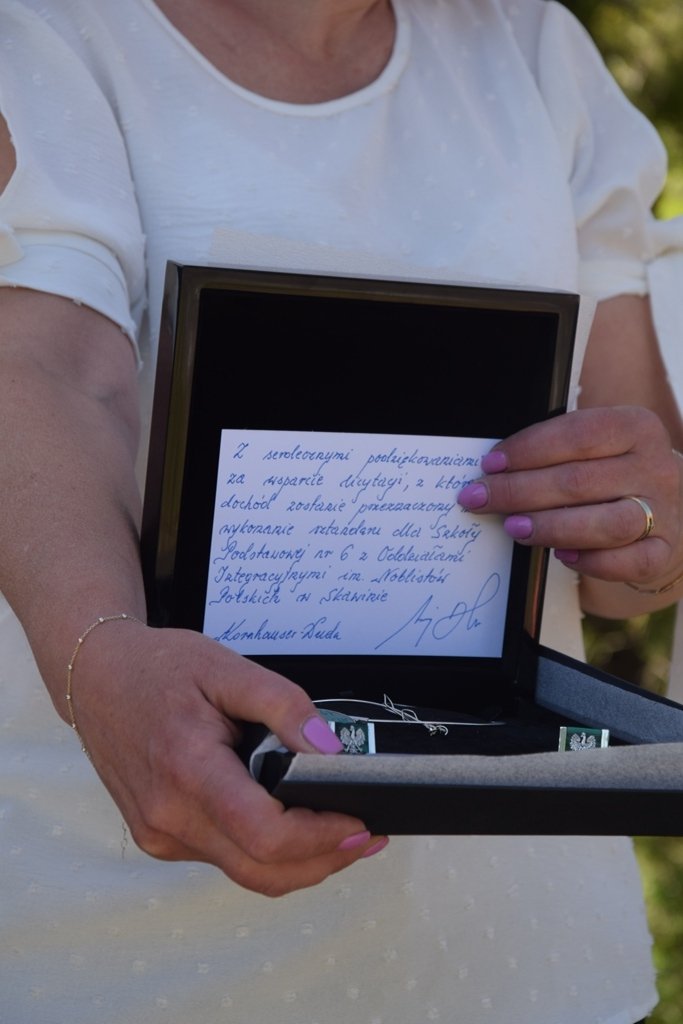 Z serdecznymi podziękowaniami
za wsparcie licytacji, z któr
dochód zostanie przeznaczony
wykonanie sztandaru dla Szkoły
Podstawowej nr 6 z Oddziałami
Integracyjnymi im. Noblistów
Polskich w Skawinie
AKornhauser-Duda